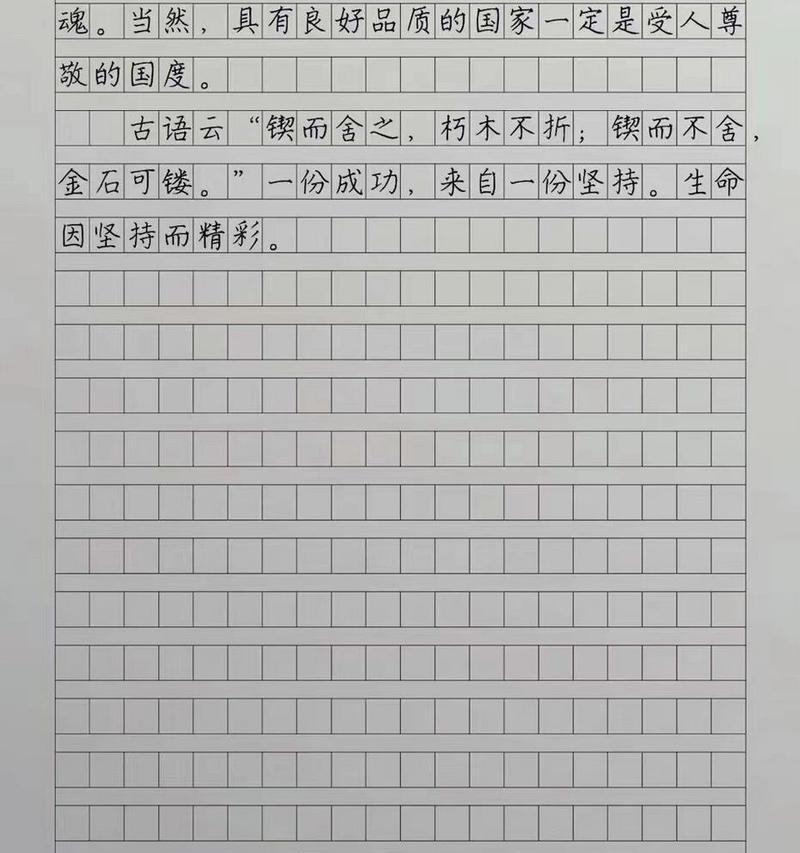 魂。当然，具有良好品质的国家一定是受人尊
敬的国度。
古语云“锲而舍之，朽木不折；锲而不舍，
金石可镂。”一份成功，来自一份坚持。生命
因坚持而精彩。